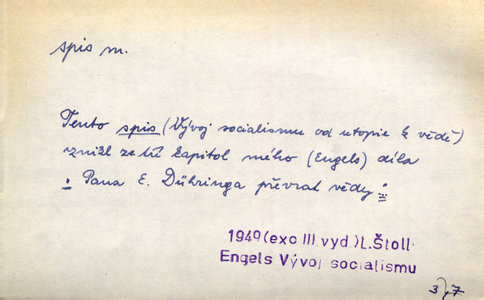 spis m.
Tento spis (Vývoj socialismu od utopie k vědě)
vznikl ze tří kapitol mého (Engels) díla
: Pana E. Dühringa převrat vědy :
1949 (exc III. vyd.) L. Štoll
Engels Vývoj socialismu
3, 7